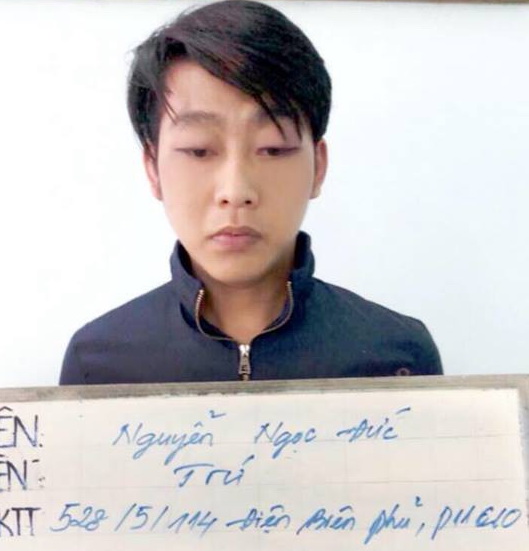 ÊN: Nguyễn Ngọc Đức
ÊN: Trí
KTT 528/5/114 Điện Biên phủ, P11 Q10